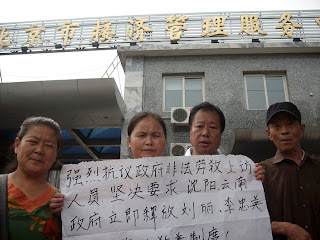 北京市接济管理服务
强烈抗议政府非法劳教上访
人员坚决要求沈阳云南
政府立即釋放刘丽、李忠美
教制度!